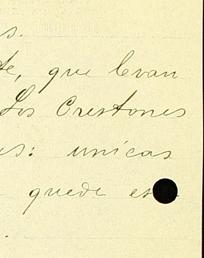 s.
te, que levan
Los Crestones
es: unicas
quede